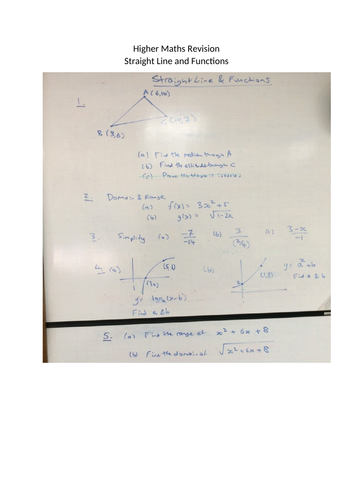 Higher Maths Revision
Straight Line and Functions
Straight Line & Functions
1.
A
B
C
(a) Find the median through A
(b) Find the altitude through C
(c) Prove the
2. Domain & Range
(a) f(x) = 3x² + 5
(b) g(x) = √1-2x
3. Simplify (a) -7/-14 (b) 3/(2/4) (c) 3-x/-1
4. (a) (b)
(5,1)
y = aˣ + b
Find a & b
y = logₐ(x-b)
Find a & b
5. (a) Find the range of x² + 6x + 8
(b) Find the domain of √x² + 6x + 8